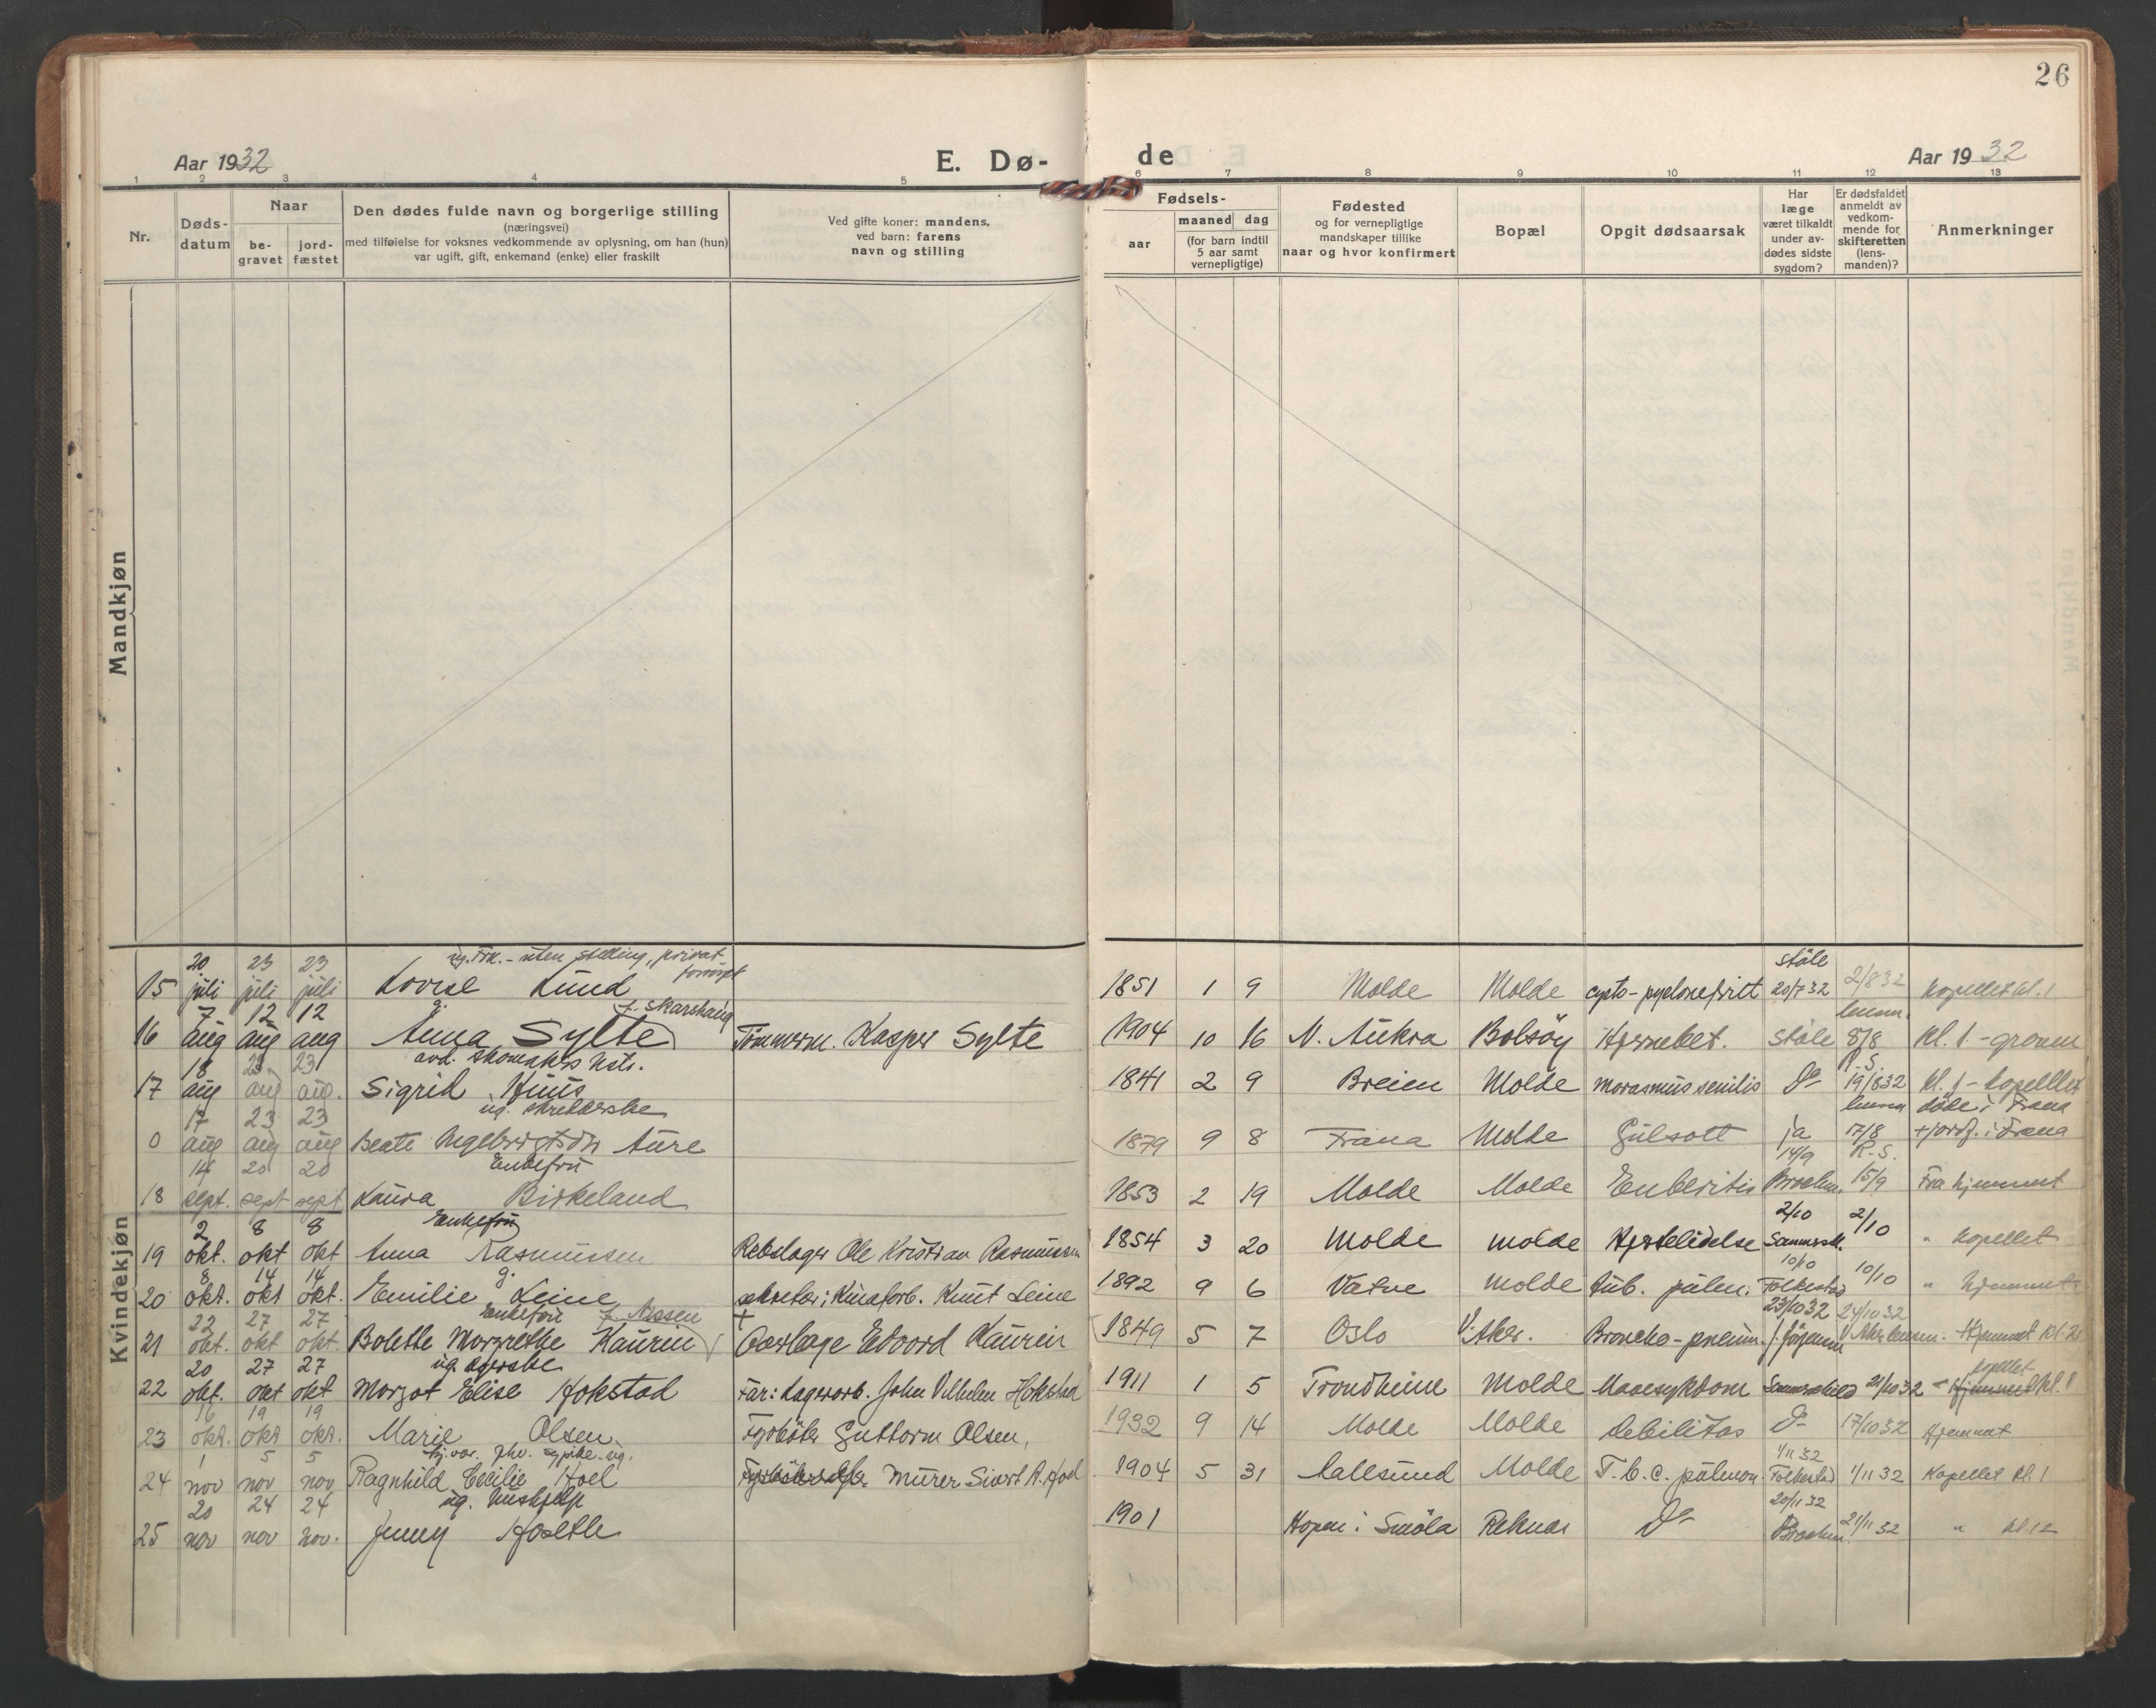 26
Aar 1932
E. Dø-
de
Aar 1932
1 2 3 4 5 6 7 8 9 10 11 12 13
Nr.
Døds-
datum
Naar
be-
gravet
jord-
fæstet
Den dødes fulde navn og borgerlige stilling
(næringsvei)
med tilføielse for voksnes vedkommende av oplysning, om han (hun)
var ugift, gift, enkemand (enke) eller fraskilt
Ved gifte koner: mandens,
ved barn: farens
navn og stilling
Fødsels-
aar
maaned dag
(for barn indtil
5 aar samt
vernepligtige)
Fødested
og for vernepligtige
mandskaper tillike
naar og hvor konfirmert
Bopæl
Opgit dødsaarsak
Har
læge
været tilkaldt
under av-
dødes sidste
sygdom?
Er dødsfaldet
anmeldt av
vedkom-
mende for
skifteretten
(lens-
manden)?
Anmerkninger
Mandkjøn
Kvindekjøn
20 23 23 ug. Frk. - uten stilling, privat forsörget ståle
15 juli juli juli Lovise Lund 1851 1 9 Molde Molde 20/7 32 2/8 32 kapellet kl. 1
7 12 12 g. f. Skarshaug
16 aug aug aug Anna Sylte Tömmerm. Kasper Sylte 1904 10 16 N. Aukra Bolsöy Hjernebet. Ståle 8/8 kl. 1 -
18 23 23 avd. skomakers
17 aug aug aug. Sigrid Huus 1841 2 9 Breien Molde marasmus senilis Do 19/8 32 kl. 1 - kapellet
17 23 23 ug. skredderske döde i Fræna
0 aug aug aug Beate Ingebrigtsdn Aure 1879 9 8 Fræna Molde Gulsott ja 17/8 + jordf. i Fræna
14 20 20 Enkefru 14/9 R.S.
18 sept. sept sept Laura Birkeland 1853 2 19 Molde Molde 15/9 Fra hjemmet
2 8 8 Enkefru 2/10 2/10
19 okt. okt okt Anna Rasmussen Rebslager Ole Kristian Rasmussen 1854 3 20 Molde Molde Hjertelidelse " kapellet
8 14 14 g. 10/10 10/10
20 okt. okt okt. Emilie Leine sekretær i Kinaforb. Knut Leine 1892 9 6 Vatne Molde tub. pulm. Folkestad " hjemmet
22 27 27 Enkefru 23/10 32 24/10 32
21 okt. okt okt. Bolette Margrethe Kaurin Overlæge Edvard Kaurin 1849 5 7 Oslo V. Aker. Broncho-pneum. Hjemmet kl. 2
20 27 27 ug. kapellet
22 okt. okt okt Margot Elise Hokstad Far: Lagerarb. John Vilhelm Hokstad 1911 1 5 Trondheim Molde Mavesykdom 21/10 32 - hjemmet kl. 1
16 19 19
23 okt. okt okt. Marie Olsen Fyrböter Guttorm Olsen, 1932 9 14 Molde Molde debilitas Do 17/10 32 Hjemmet
1 5 5 ug. 1/11 32
24 nov nov nov Ragnhild Cecilie Hoel Murer Sivert A. Hoel 1904 5 31 Molde T.b.c. pulmon. Folkestad 1/11 32 Kapellet kl. 1
20 24 24 ug. hushjelp 20/11 32
25 nov nov nov. Jenny 1901 Hopen i Smöla Reknes Do 21/11 32 " kl. 12